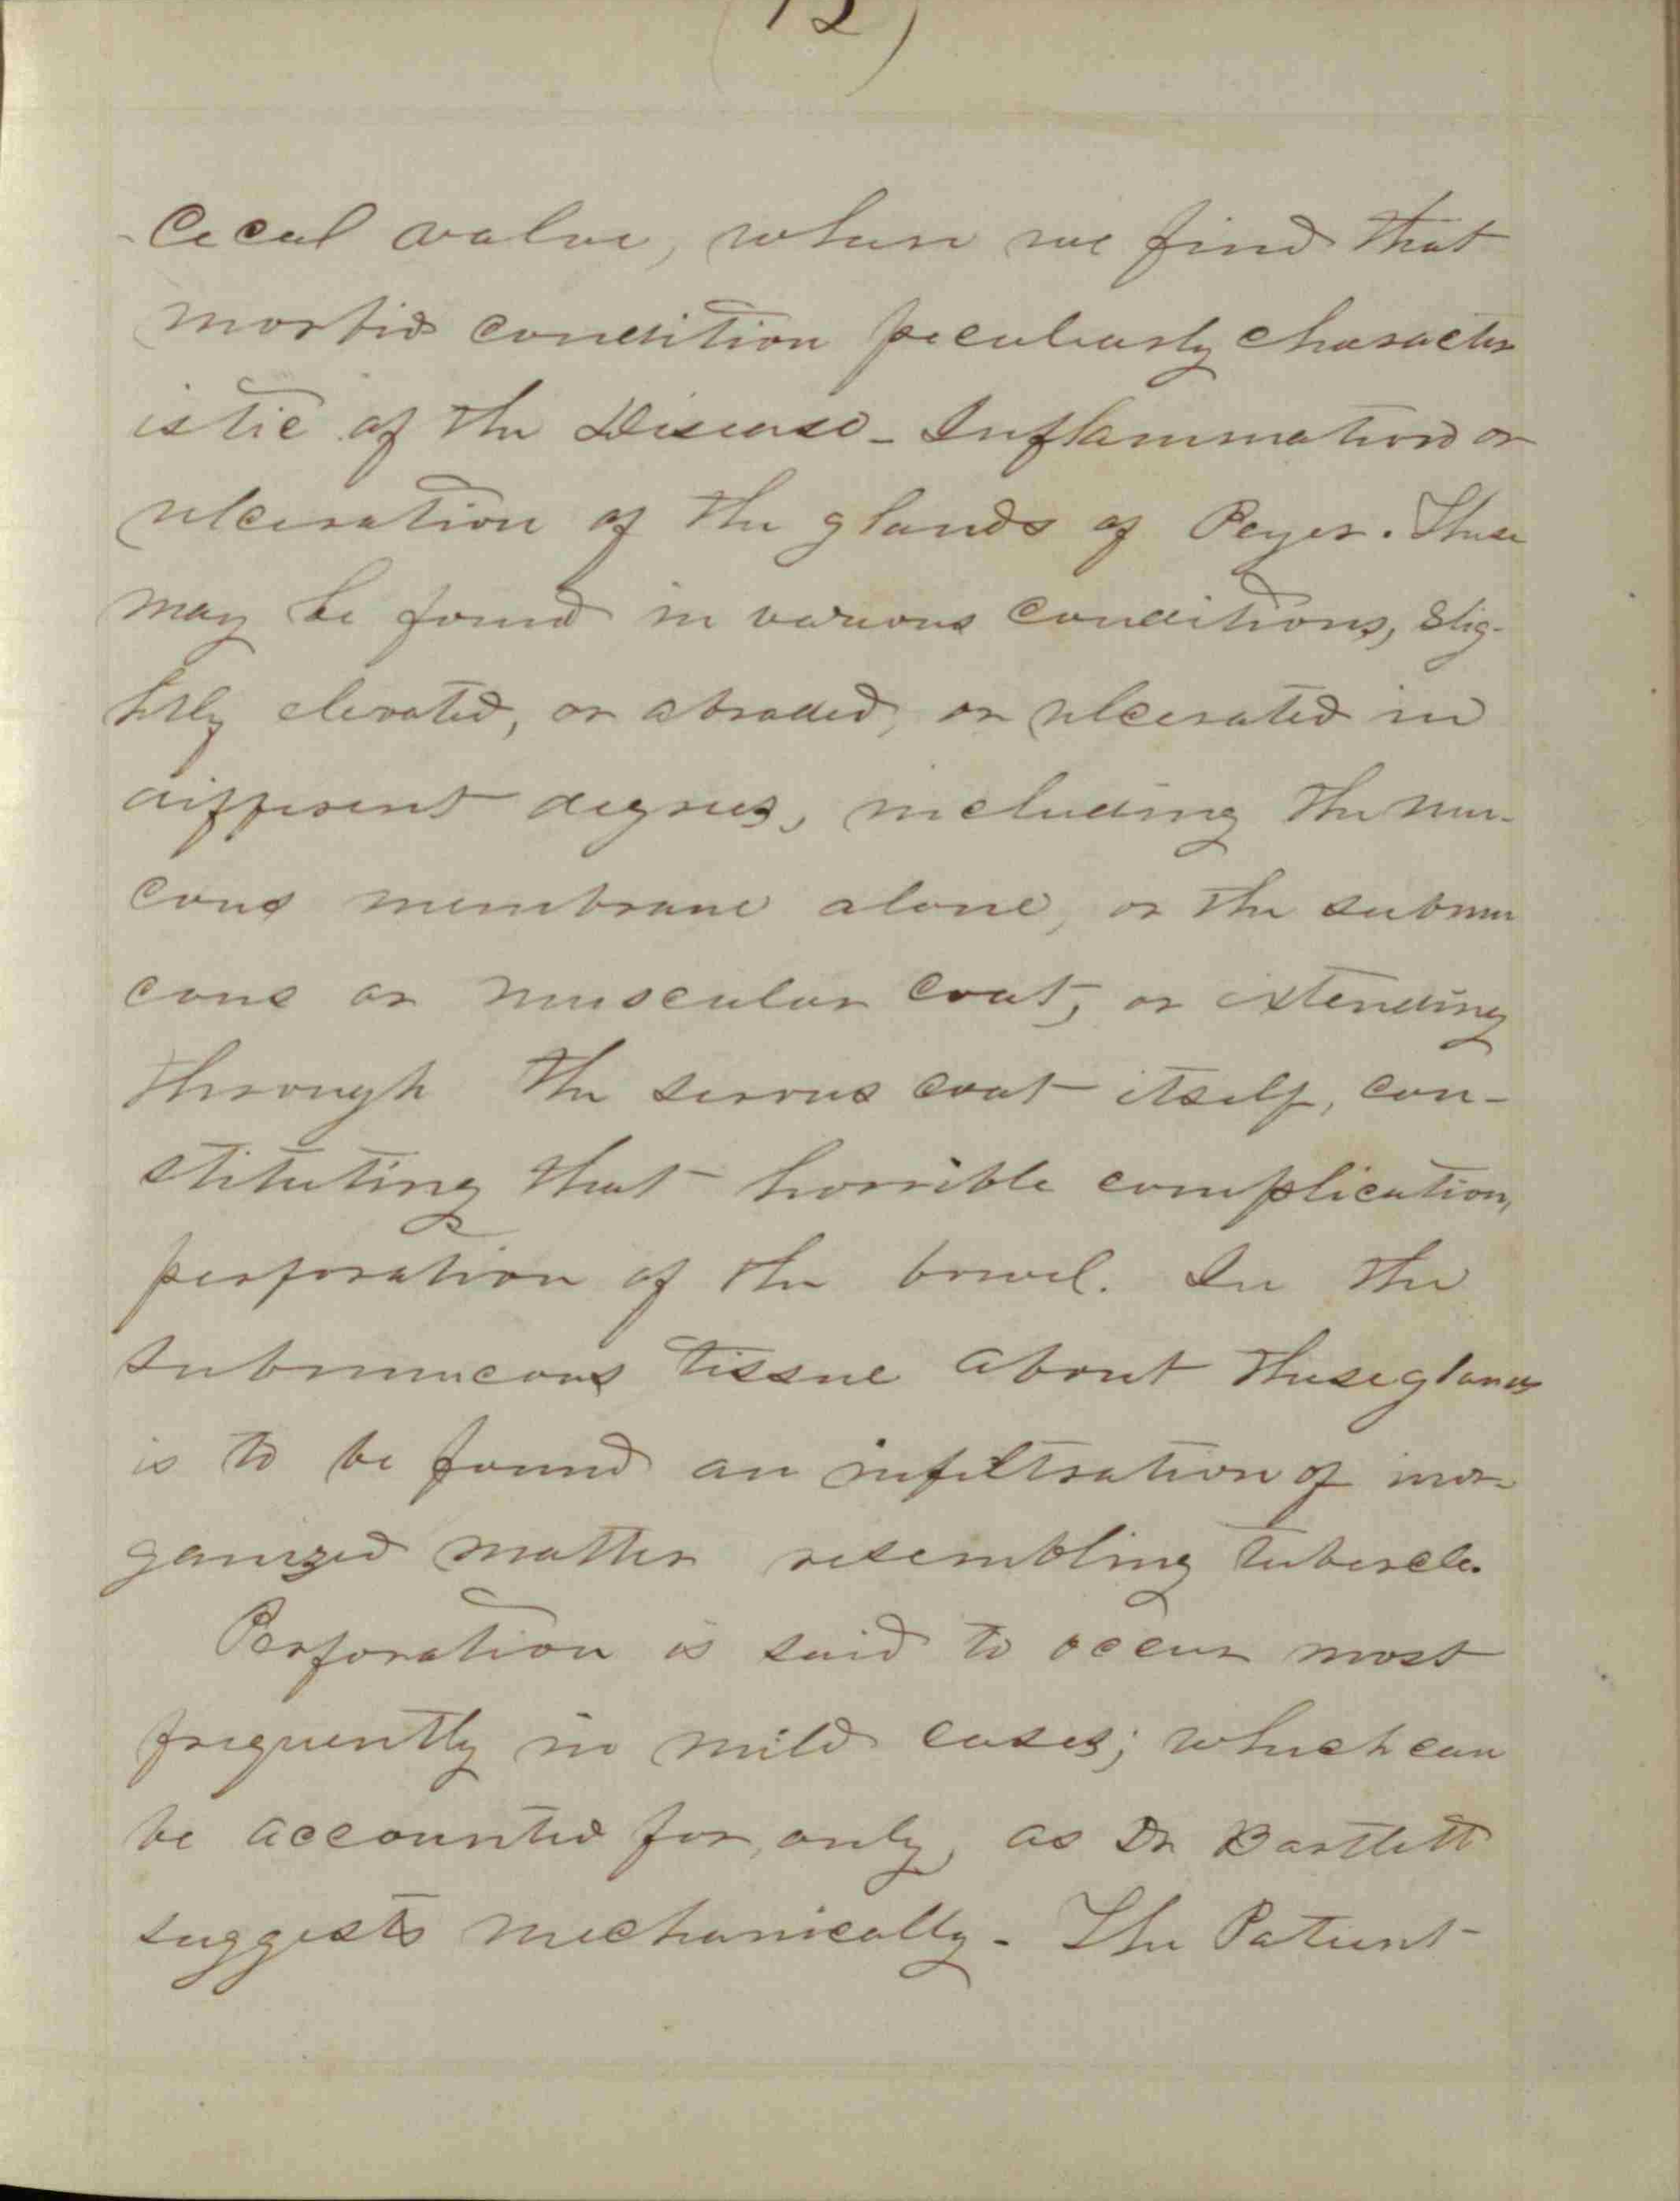 12)
-Cecal valve, where we find that
morbid condition peculiarly character
istic of the Disease - Inflammation or
ulceration of the glands of Peyer. These
may be found in various conditions, slig-
htly elevated, or abraded, or ulcerated in
different degrees, including the mu-
cous membrane alone, or the submu
cous or muscular coat, or extending
through the serous coat itself, con-
stituting that horrible complication,
perforation of the bowel. In the
submucous tissue about these glands
is to be found an infiltration of inor-
ganized matter resembling tubercle.
Perforation is said to occur most
frequently in mild cases; which can
be accounted for, only, as Dr Bartlett
suggests mechanically - The Patient